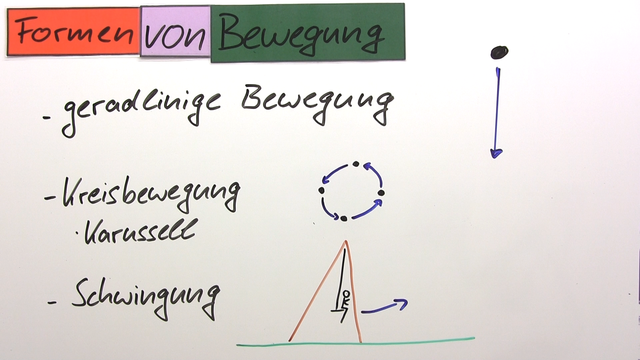 Formen von Bewegung
- geradlinige Bewegung
- Kreisbewegung
· Karussell
- Schwingung